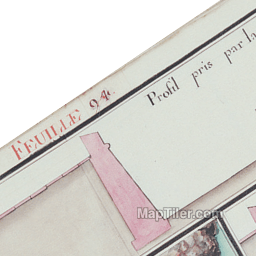 FEUILLE 94e
Profil pris par la
MapTiler.com